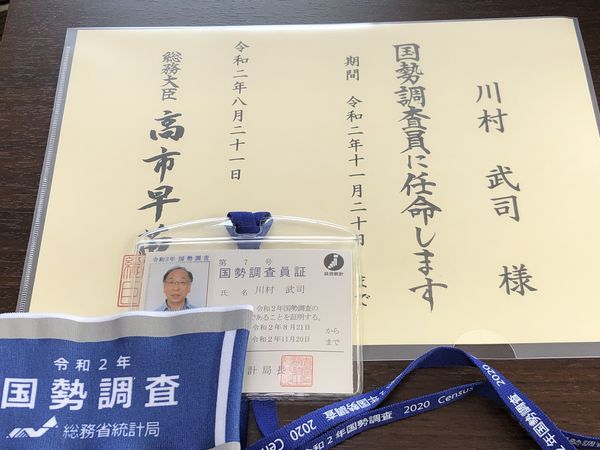 川村 武司 様
国勢調査員に任命します
期間 令和二年十一月二十日 まで
令和二年八月二十一日
総務大臣 高市早
令和2年 国勢調査
第 7 号
国勢調査員証
氏 名 川村 武司
令和2年国勢調査の
であることを証明する。
令和2年8月21日 から
令和2年11月20日 まで
計局長
令和2年
国勢調査
総務省統計局
2020 Census
令和2年国勢調査 2020
年国勢調査 2020